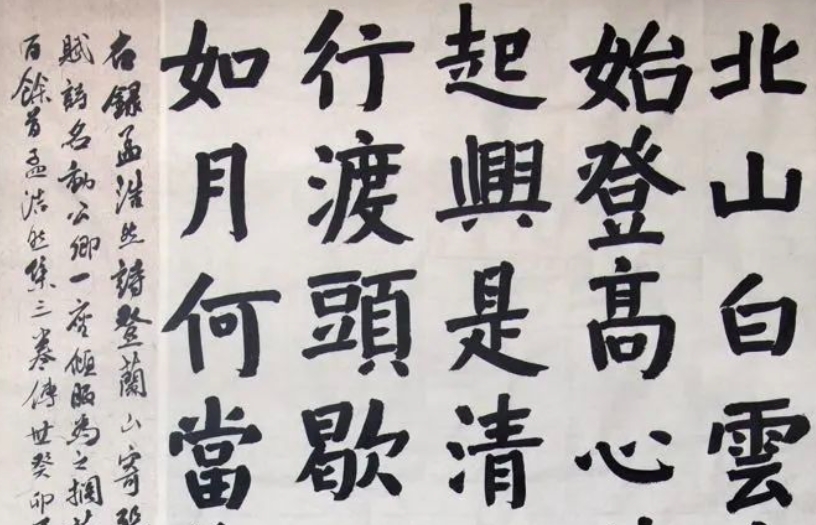 北山白雲
始登髙心
起興是清
行渡頭歇
如月何當
右錄孟浩然詩登蘭山寄
賦詩名動公卿一座傾服為之擱
百餘首孟浩然集三卷傳世癸卯